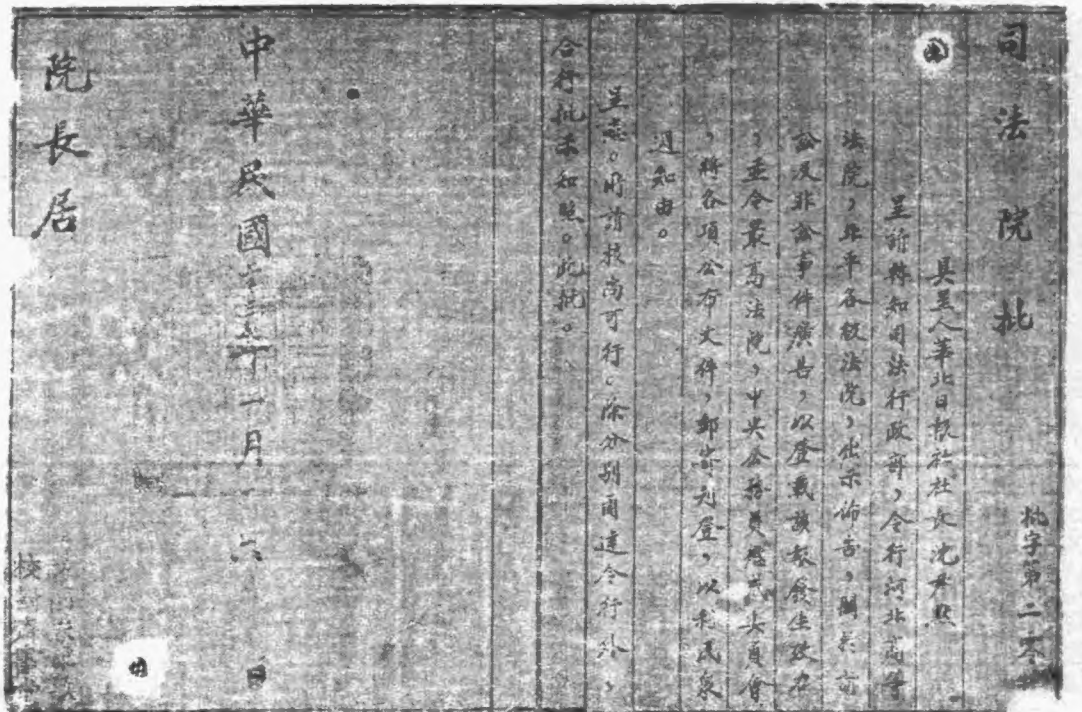 司法院批
批字第二零
具呈人華北日報社社長沈君默
呈請轉知司法行政部,令行河北高等
法院,北平各級法院,出示佈告,關於訴
訟及非訟事件廣告,以登載該報發生效力
,並令最高法院,中央公務員懲戒委員會
,將各項公布文件,郵寄刊登,以利民衆
週知由。
呈悉。所請核尚可行。除分別函達令行外,
合行批示知照。此批。
中華民國 十一月 六 日
院長居
校對